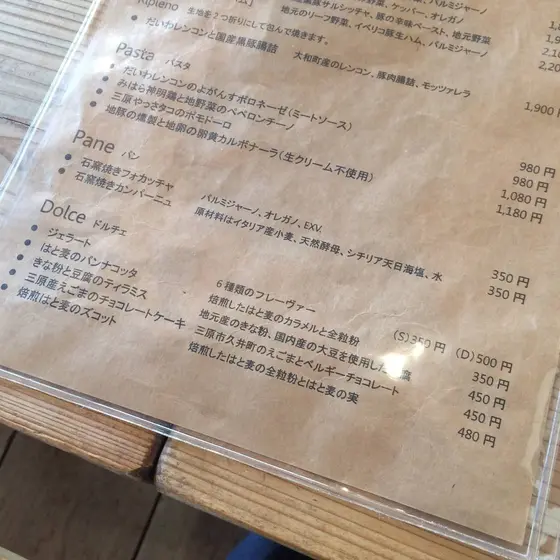 パルミジャーノ
豚サルシッチャ、ケッパー、オレガノ
Ripieno 豚の辛味ペースト、地元野菜
生地を2つ折りにして包んで焼きます。 地元のリーフ野菜、イベリコ豚生ハム、パルミジャーノ
だいわレンコンと国産黒豚腸詰 大和町産のレンコン、豚肉腸詰、モッツァレラ 1,900円
Pasta パスタ
だいわレンコンのよがんすボロネーゼ(ミートソース) 980円
みはら神明鶏と地野菜のペペロンチーノ 980円
三原やっさタコのポモドーロ 1,080円
地豚の燻製と地卵の卵黄カルボナーラ(生クリーム不使用) 1,180円
Pane パン
石窯焼きフォカッチャ パルミジャーノ、オレガノ、EXV. 350円
石窯焼きカンパーニュ 原材料はイタリア産小麦、天然酵母、シチリア天日海塩、水 350円
Dolce ドルチェ
ジェラート 6種類のフレーヴァー (S)350円 (D)500円
はと麦のパンナコッタ 焙煎したはと麦のカラメルと全粒粉 350円
きな粉と豆腐のティラミス 地元産のきな粉、国内産の大豆を使用した 450円
三原産えごまのチョコレートケーキ 三原市久井町のえごまとベルギーチョコレート 450円
焙煎はと麦のズコット 焙煎したはと麦の全粒粉とはと麦の実 480円